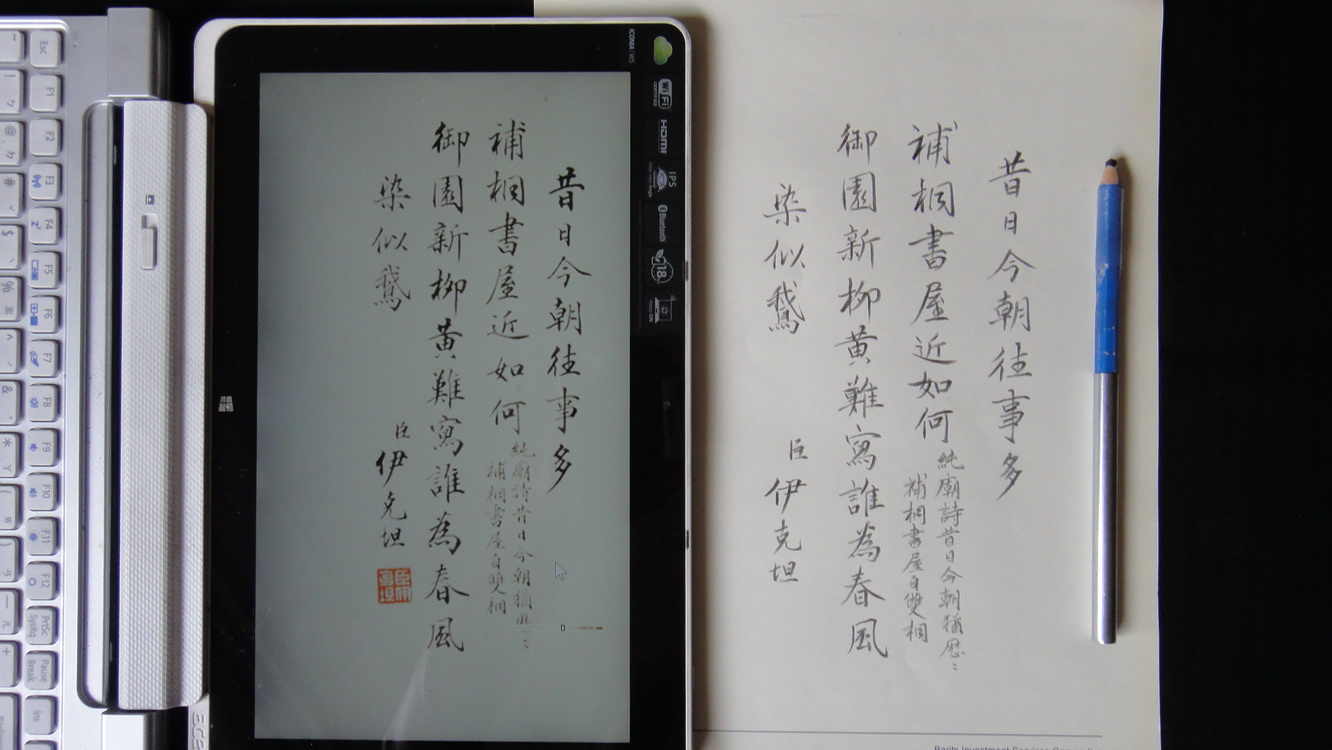 昔日今朝往事多
補桐書屋近如何
純廟詩昔日今朝猶歷〻
補桐書屋自雙桐
御園新柳黃難寫誰為春風
染似鵞
臣伊克坦
昔日今朝往事多
補桐書屋近如何
純廟詩昔日今朝猶歷〻
補桐書屋自雙桐
御園新柳黃難寫誰為春風
染似鵞
臣伊克坦
ICONIA W5
Wi Fi
CERTIFIED
HDMI
IPS
Bluetooth
18
acer
Esc
F1
F2
F3
F4
F5
F6
F7
F8
F9
F10
F11
F12
PrtSc
SysRq
Pause
Break
Ins